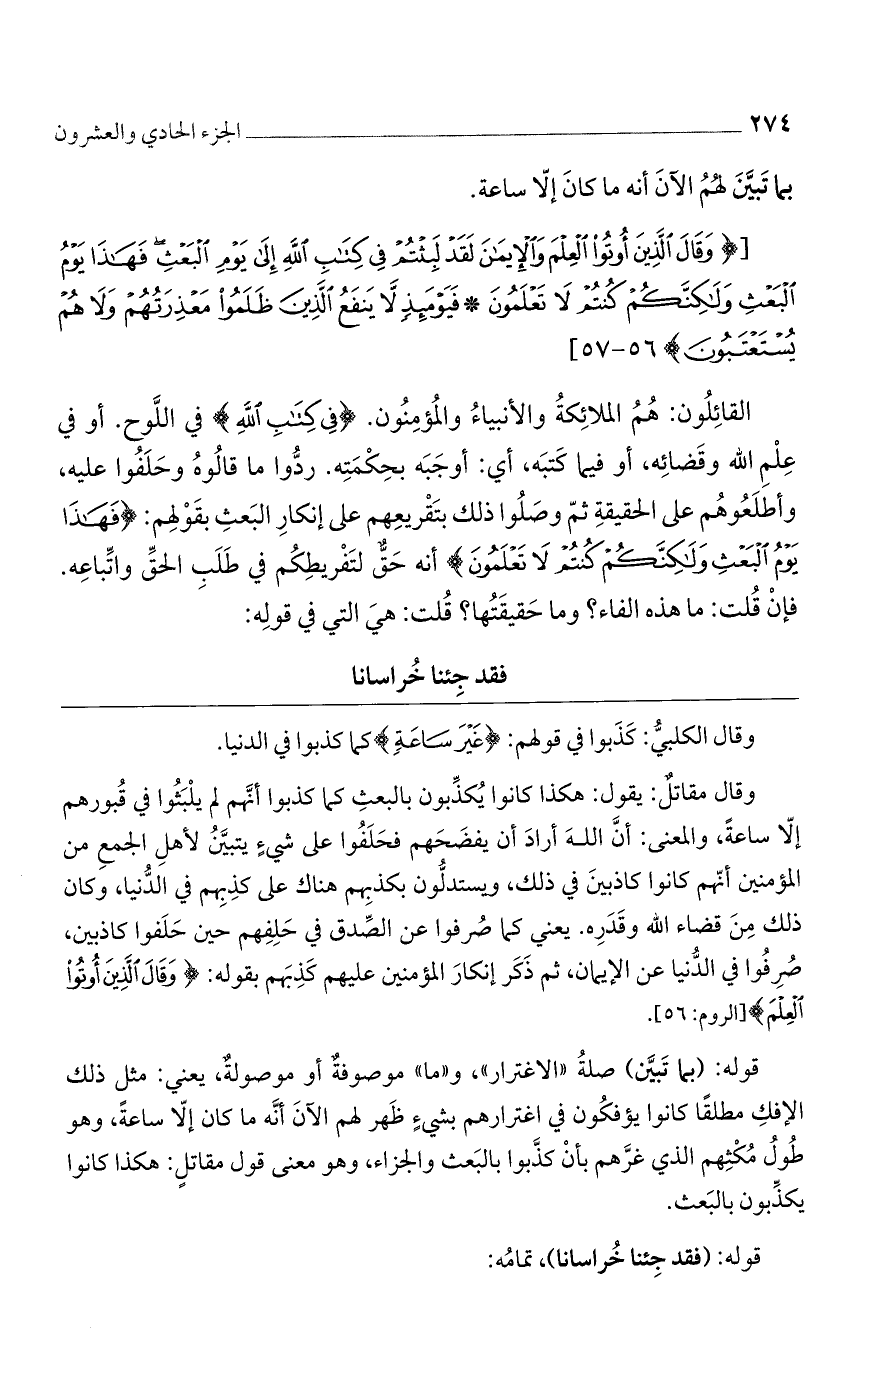 ٢٧٤ الجزء الحادي والعشرون
بما تَبيَّنَ لهُمُ الآنَ أنه ما كانَ إلّا ساعة.
[﴿ وَقَالَ ٱلَّذِينَ أُوتُوا۟ ٱلْعِلْمَ وَٱلْإِيمَٰنَ لَقَدْ لَبِثْتُمْ فِى كِتَٰبِ ٱللَّهِ إِلَىٰ يَوْمِ ٱلْبَعْثِ ۖ فَهَٰذَا يَوْمُ
ٱلْبَعْثِ وَلَٰكِنَّكُمْ كُنتُمْ لَا تَعْلَمُونَ * فَيَوْمَئِذٍ لَّا يَنفَعُ ٱلَّذِينَ ظَلَمُوا۟ مَعْذِرَتُهُمْ وَلَا هُمْ
يُسْتَعْتَبُونَ﴾ ٥٦-٥٧]
القائِلُون: هُمُ الملائكةُ والأنبياءُ والمُؤمِنُون. ﴿فِى كِتَٰبِ ٱللَّهِ﴾ في اللَّوح. أو في
عِلْمِ الله وقَضائِه، أو فيما كَتبَه، أي: أوجَبَه بحِكْمَتِه. ردُّوا ما قالُوهُ وحَلَفُوا عليه،
وأطلَعُوهُم على الحقيقةِ ثمّ وصَلُوا ذلك بتَقْريعِهم على إنكارِ البَعثِ بقَوْلِهم: ﴿فَهَٰذَا
يَوْمُ ٱلْبَعْثِ وَلَٰكِنَّكُمْ كُنتُمْ لَا تَعْلَمُونَ﴾ أنه حَقٌّ لتَفْريطِكُم في طَلَبِ الحقِّ واتِّباعِه.
فإنْ قُلت: ما هذه الفاء؟ وما حَقيقَتُها؟ قُلت: هيَ التي في قولِه:
فقد جِئنا خُراسانا
وقال الكلبيُّ: كَذَبوا في قولهم: ﴿غَيْرَ سَاعَةٍ﴾ كما كذبوا في الدنيا.
وقال مقاتلٌ: يقول: هكذا كانوا يُكذِّبون بالبعثِ كما كذبوا أنَّهم لم يلْبَثُوا في قُبورهم
إلّا ساعةً، والمعنى: أنَّ اللهَ أرادَ أن يفضَحَهم فحَلَفُوا على شيءٍ يتبيَّنُ لأهلِ الجمعِ من
المؤمنين أنّهم كانوا كاذبينَ في ذلك، ويستدلُّون بكذبِهم هناك على كذِبِهم في الدُّنيا، وكان
ذلك مِنَ قضاء الله وقَدَرِه. يعني كما صُرفوا عن الصِّدق في حَلِفِهم حين حَلَفوا كاذبين،
صُرِفُوا في الدُّنيا عن الإيمان، ثم ذَكَر إنكارَ المؤمنين عليهم كَذِبَهم بقوله: ﴿ وَقَالَ ٱلَّذِينَ أُوتُوا۟
ٱلْعِلْمَ﴾ [الروم: ٥٦].
قوله: (بما تَبيَّن) صلةُ «الاغترار»، و«ما» موصوفةٌ أو موصولةٌ، يعني: مثل ذلك
الإفكِ مطلقًا كانوا يؤفكُون في اغترارهم بشيءٍ ظَهر لهم الآنَ أنَّه ما كان إلّا ساعةً، وهو
طُولُ مُكْثِهم الذي غرَّهم بأنْ كذَّبوا بالبَعث والجزاء، وهو معنى قول مقاتلٍ: هكذا كانوا
يكذِّبون بالبَعث.
قوله: (فقد جِئنا خُراسانا)، تمامُه: